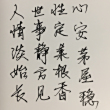 心安茅屋稳
性定菜根香
世事静方见
人情淡始长